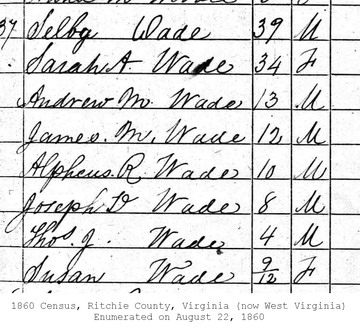 37 Selby Wade 39 M
Sarah A. Wade 34 F
Andrew M. Wade 13 M
James. M. Wade 12 M
Alpheus. R Wade 10 M
Joseph D Wade 8 M
Thos. J. Wade 4 M
Susan Wade 9/12 F
1860 Census, Ritchie County, Virginia (now West Virginia)
Enumerated on August 22, 1860